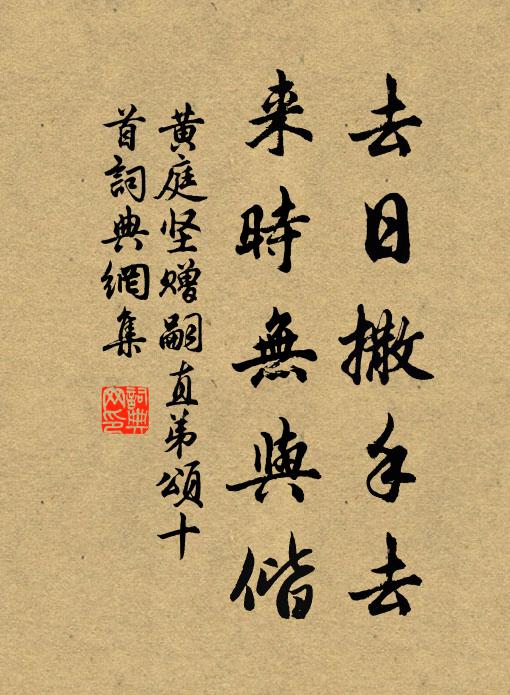 去日撒手去
来時無與偕
黄庭坚贈嗣直弟頌十
首詞典網集
詞典网印